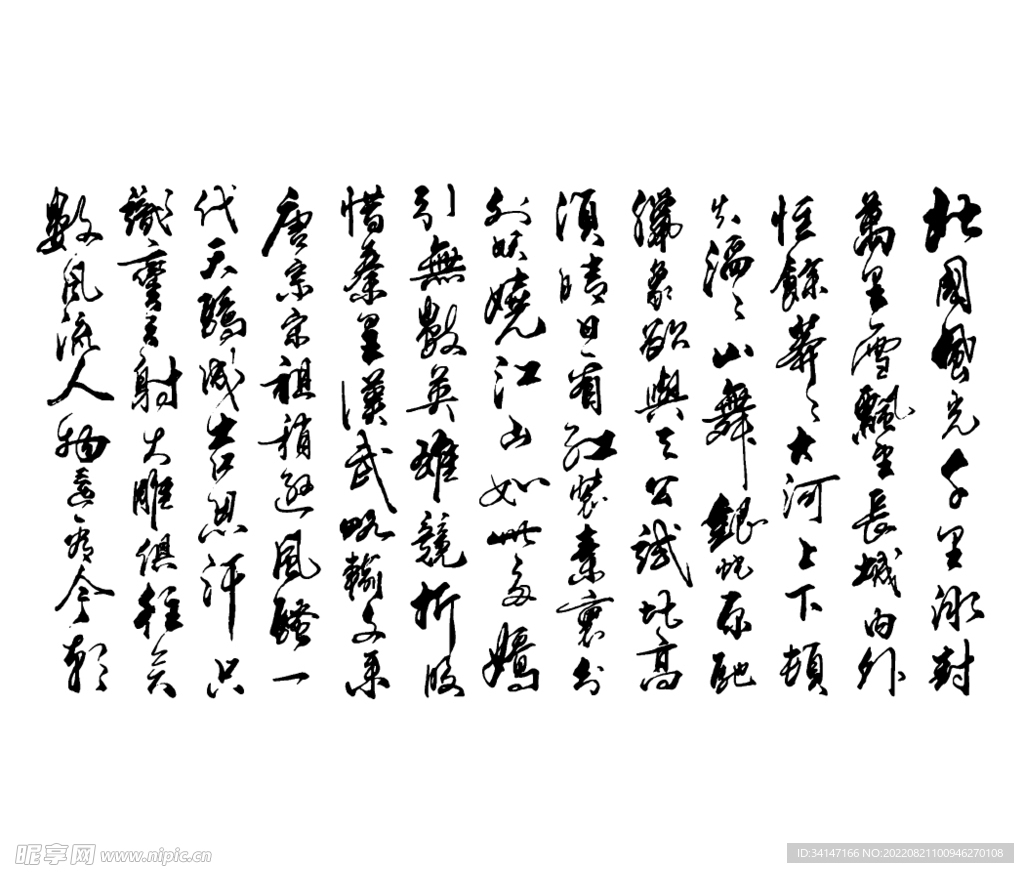 北國風光千里冰封
萬里雪飄望長城內外
惟餘莽々大河上下頓
失滔々山舞銀蛇原馳
臘象欲與天公試比高
須晴日看紅裝素裹分
外妖嬈江山如此多嬌
引無數英雄競折腰
惜秦皇漢武略輸文采
唐宗宋祖稍遜風騷一
代天驕成吉思汗只
識彎弓射大雕俱往矣
數風流人物還看今朝
昵享网 www.nipic.cn
ID:34147166 NO:20220821100946270108